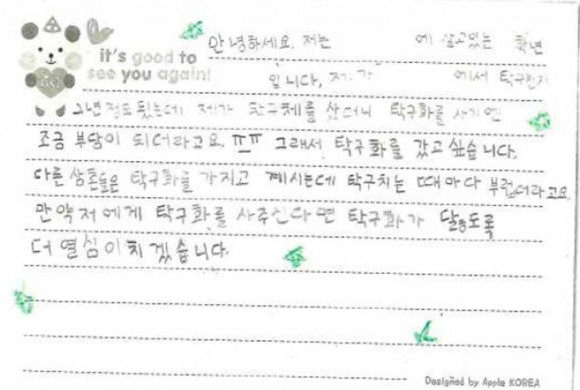 안녕하세요. 저는 에 살고있는 학년
it's good to
see you again!
입니다. 제가 에서 탁구친지
2년정도 됐는데 제가 탁구채를 샀더니 탁구화를 사기엔
조금 부담이 되더라고요. ㅠㅠ 그래서 탁구화를 갖고 싶습니다.
다른 삼촌들은 탁구화를 가지고 계시는데 탁구치는 때마다 부럽더라고요
만약저에게 탁구화를 사주신다면 탁구화가 닳도록
더 열심이 치겠습니다.
Designed by Apple KOREA